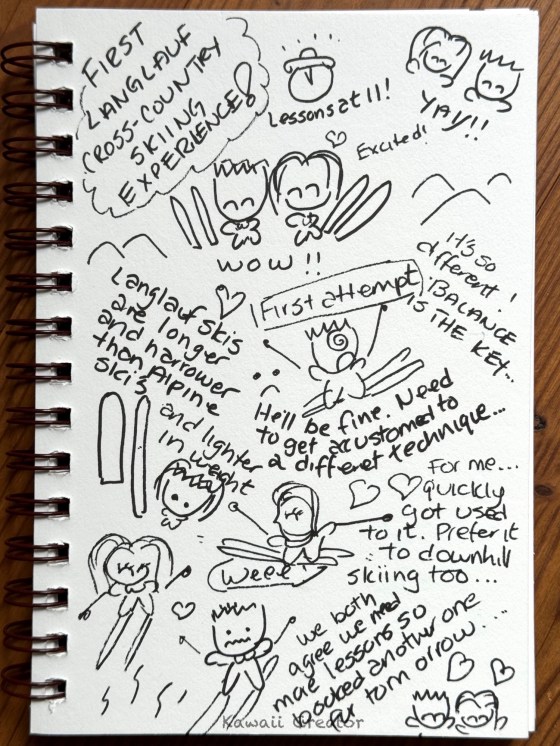 FIRST
LANGLAUF
CROSS-COUNTRY
SKIING
EXPERIENCE!
Lessons at 11!
YAY!!
Excited!
WOW!!
It's so
different!
BALANCE
IS THE KEY...
Langlauf skis
are longer
and narrower
than Alpine
skis
and lighter
in weight
First attempt
He'll be fine. Need
to get accustomed to
a different technique...
For me...
quickly
got used
to it. Prefer it
to downhill
skiing too...
Weee
we both
agree we need
more lessons so
booked another one
for tomorrow....
Kawaii Creator